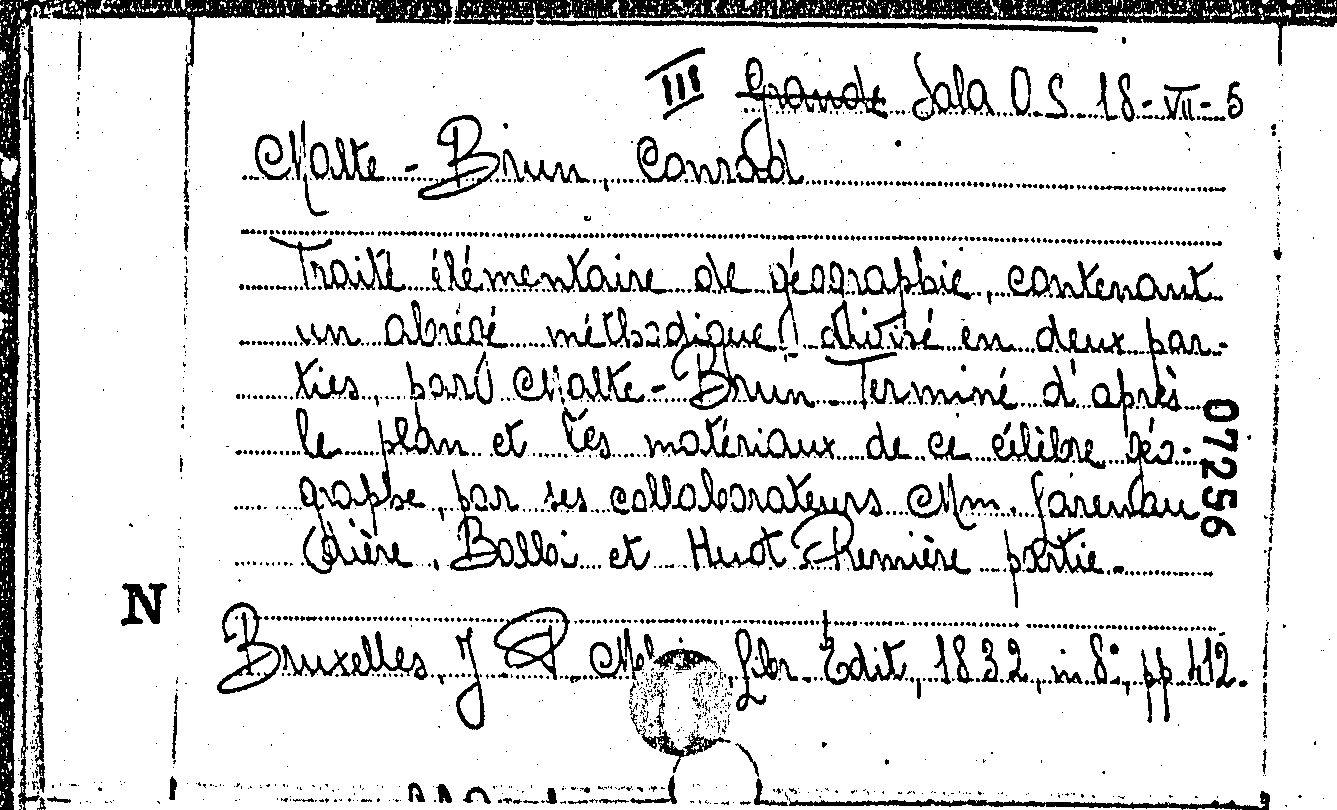 III Grande Sala O.S. 18-VII-5
Malte-Brun, Conrad
Traité élémentaire de géographie, contenant
un abrégé méthodique divisé en deux par-
ties, par Malte-Brun Terminé d'après
le plan et les matériaux de ce célèbre géo-
graphe, par ses collaborateurs Mm. Larenau
dière, Balbi et Huot Première partie.
Bruxelles, J P. libr. Édit, 1832, in 8°, pp 412.
07256
N